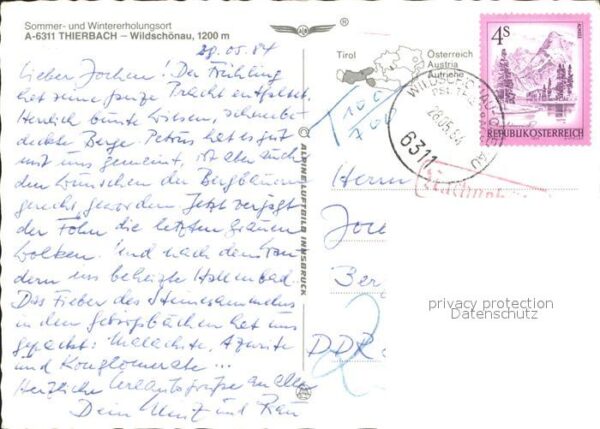 Sommer- und Wintererholungsort
A-6311 THIERBACH – Wildschönau, 1200 m
28.05.84
Lieber Jochen! Der Frühling
hat seine ganze Pracht entfaltet.
Herrlich bunte Wiesen, schneebe-
deckte Berge. Petrus hat es gut
mit uns gemeint, ist aber auch
den Wünschen der Bergbauern
gerecht geworden. Jetzt verjagt
der Föhn die letzten grauen
Wolken. Und nach dem Wan-
dern ins beheizte Hallenbad.
Das Fieber des Steinesammelns
in den Gebirgsbächen hat uns
gepackt: Malachite, Azurite
und Konglomerate...
Herzliche Urlaubsgrüße an alle
Dein und Frau
ALPINE LUFTBILD INNSBRUCK
®
Tirol
Österreich
Austria
Autriche
T 100
700
WILDSCHÖNAU
28.05.84
6311
4S
REPUBLIK ÖSTERREICH
Herrn
Joc
Ber
DDR
2
privacy protection
Datenschutz